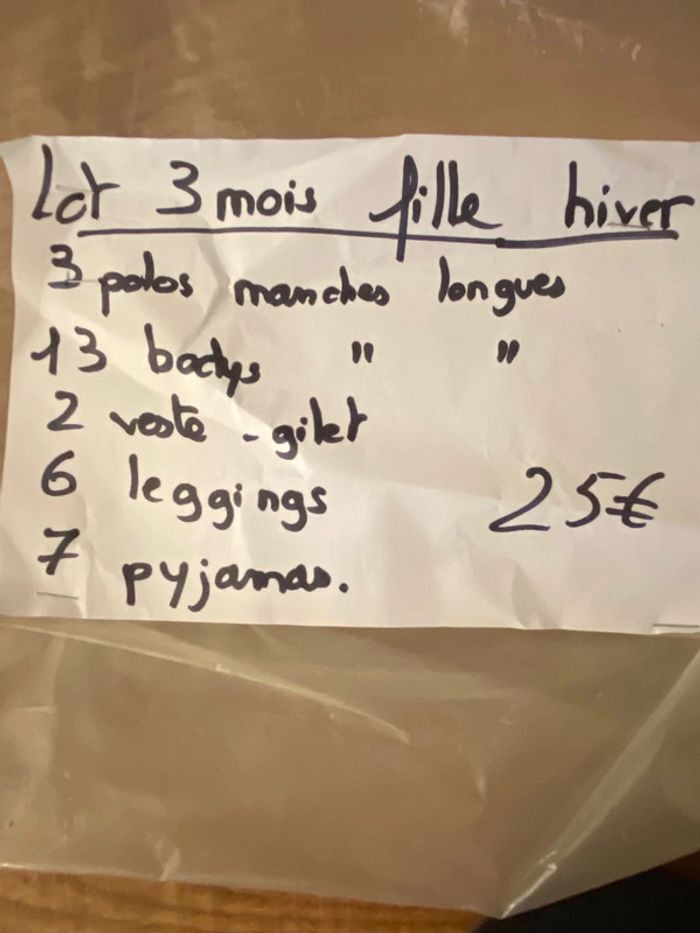 Lot 3 mois fille hiver
3 polos manches longues
13 bodys " "
2 veste - gilet
6 leggings 25€
7 pyjamas.